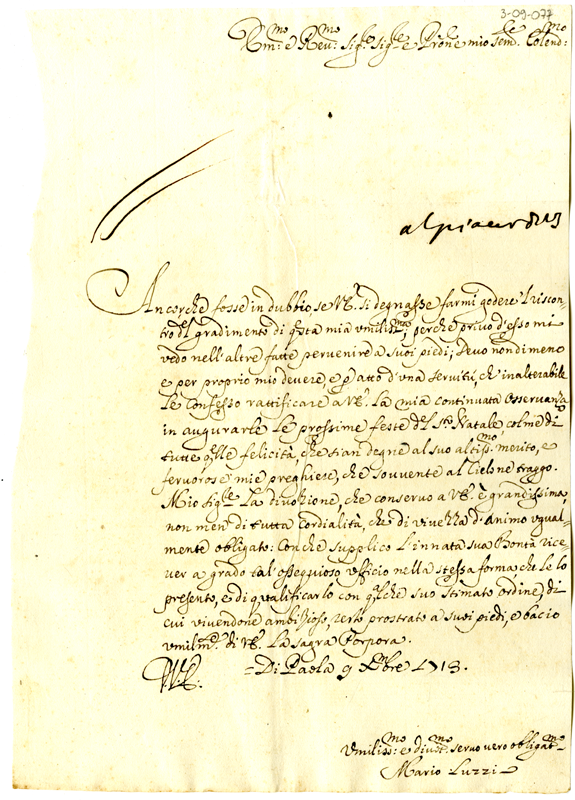 3-09-077
Em.mo e Rev.mo Sig.r Sig.re e Prone mio sem.le Colend.mo
Ancorche fosse in dubbio, se V.E. si degnasse farmi godere 'l riscon-
tro del gradimento di q.sta mia vmiliss.ma, perche privo d'esso mi
vedo nell'altre fatte pervenire a suoi piedi; Devo nondimeno
e per proprio mio devere, e p atto d'vna servitù, ch'inalterabile
le confesso rattificare a V.E. la mia continuata osservanza
in augurarle le prossime feste del S.to Natale colme di
tutte q.lle felicità, che sian degne al suo altiss.mo merito, e
fervorose mie preghiere, che souvente al Cielo ne traggo.
Mio Sig.re la divozione, che conservo a V.E. è grandissima,
non men di tutta cordialità, che di vivezza d'animo vgual-
mente obligato: Con che supplico l'innata sua Bontà rice-
ver a grado tal'ossequioso vfficio nella stessa forma che le lo
presento, e di qualificarlo con q.lche suo stimato ordine, di
cui vivendone ambizioso, resto prostrato a suoi piedi, e bacio
vmilm.te di V.E. la sagra Porpora.
Di Paola 9 Xmbre 1713.
Vmiliss.mo e divot.mo servo vero obligat.mo
Mario Luzzi